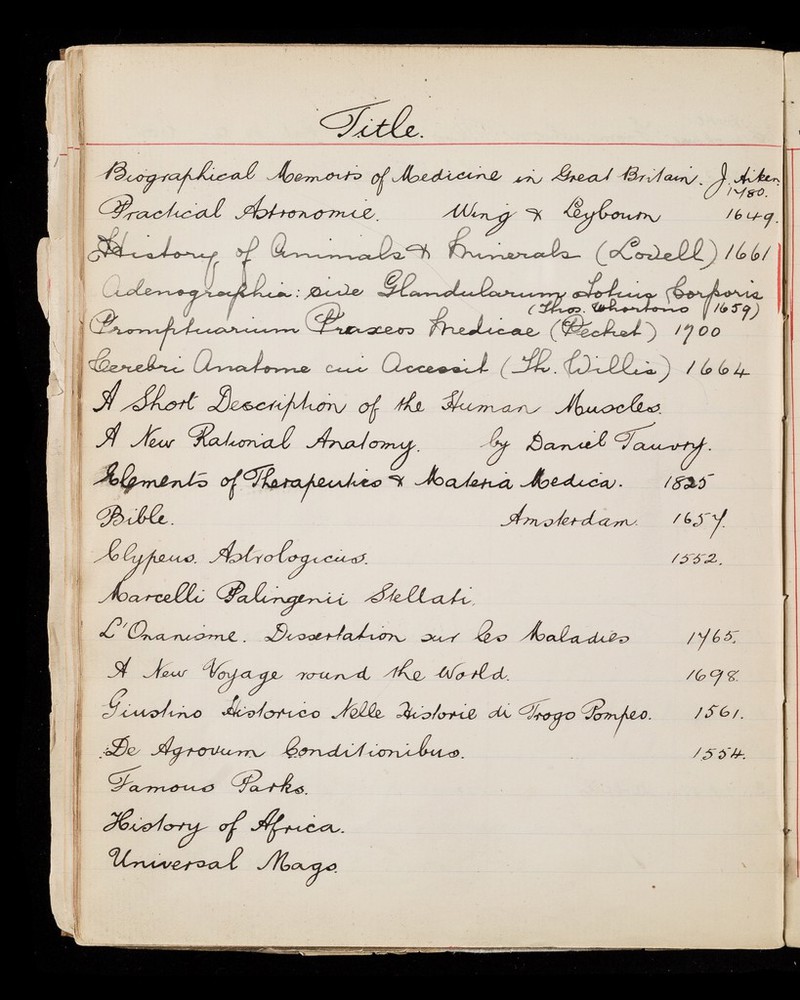 Title.
Biographical Memoirs of Medicine in Great Britain. J. Aiken. 1780.
Practical Astronomie. Wing & Leybourn 1649.
History of Animals & Minerals (Lovell) 1661
Adenographia: sive Glandularum totius Corporis
(Thos. Whartono 1659)
Promptuarium Praxeos Medicae (Pechet) 1700
Cerebri Anatome cui Accessit (Th. Willis) 1664
A Short Description of the Human Muscles.
A New Rational Anatomy. by Daniel Tauvry.
Elements of Therapeutics & Materia Medica. 1825
Bible. Amsterdam. 1657.
Clypeus. Astrologicus. 1552.
Marcelli Palingenii Stellati.
L'Onanisme. Dissertation sur les Maladies 1765.
A New Voyage round the World. 1698.
Giustino Historico Nelle Historie di Trogo Pompeo. 1561.
De Agrorum Conditionibus. 1554.
Famous Parks.
History of Africa.
Universal Mags.